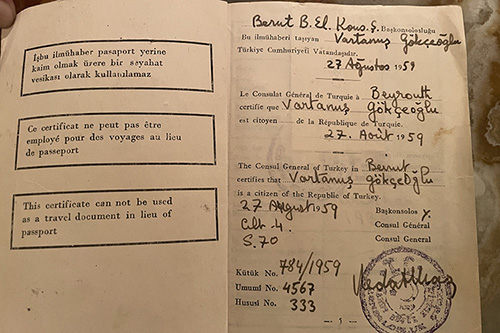 İşbu ilmühaber pasaport yerine
kaim olmak üzere bir seyahat
vesikası olarak kullanılamaz
Ce certificat ne peut pas être
employé pour des voyages au lieu
de passeport
This certificate can not be used
as a travel document in lieu of
passport
Berut B. El. Kons. Ş. Başkonsolosluğu
Bu ilmühaberi taşıyan Vartanuş Gökçeoğlu
Türkiye Cumhuriyeti Vatandaşıdır.
27 Ağustos 1959
Le Consulat Général de Turquie à Beyrouth
certifie que Vartanuş Gökçeoğlu
est citoyen de la République de Turquie.
27. Août 1959
The Consul General of Turkey in Beirut
certifies that Vartanuş Gökçeoğlu
is a citizen of the Republic of Turkey.
27 August 1959 Başkonsolos
Cilt 4. Consul Général
S. 70 Consul General
Kütük No. 784/1959
Umumî No 4567
Hususî No. 333
— 1 —